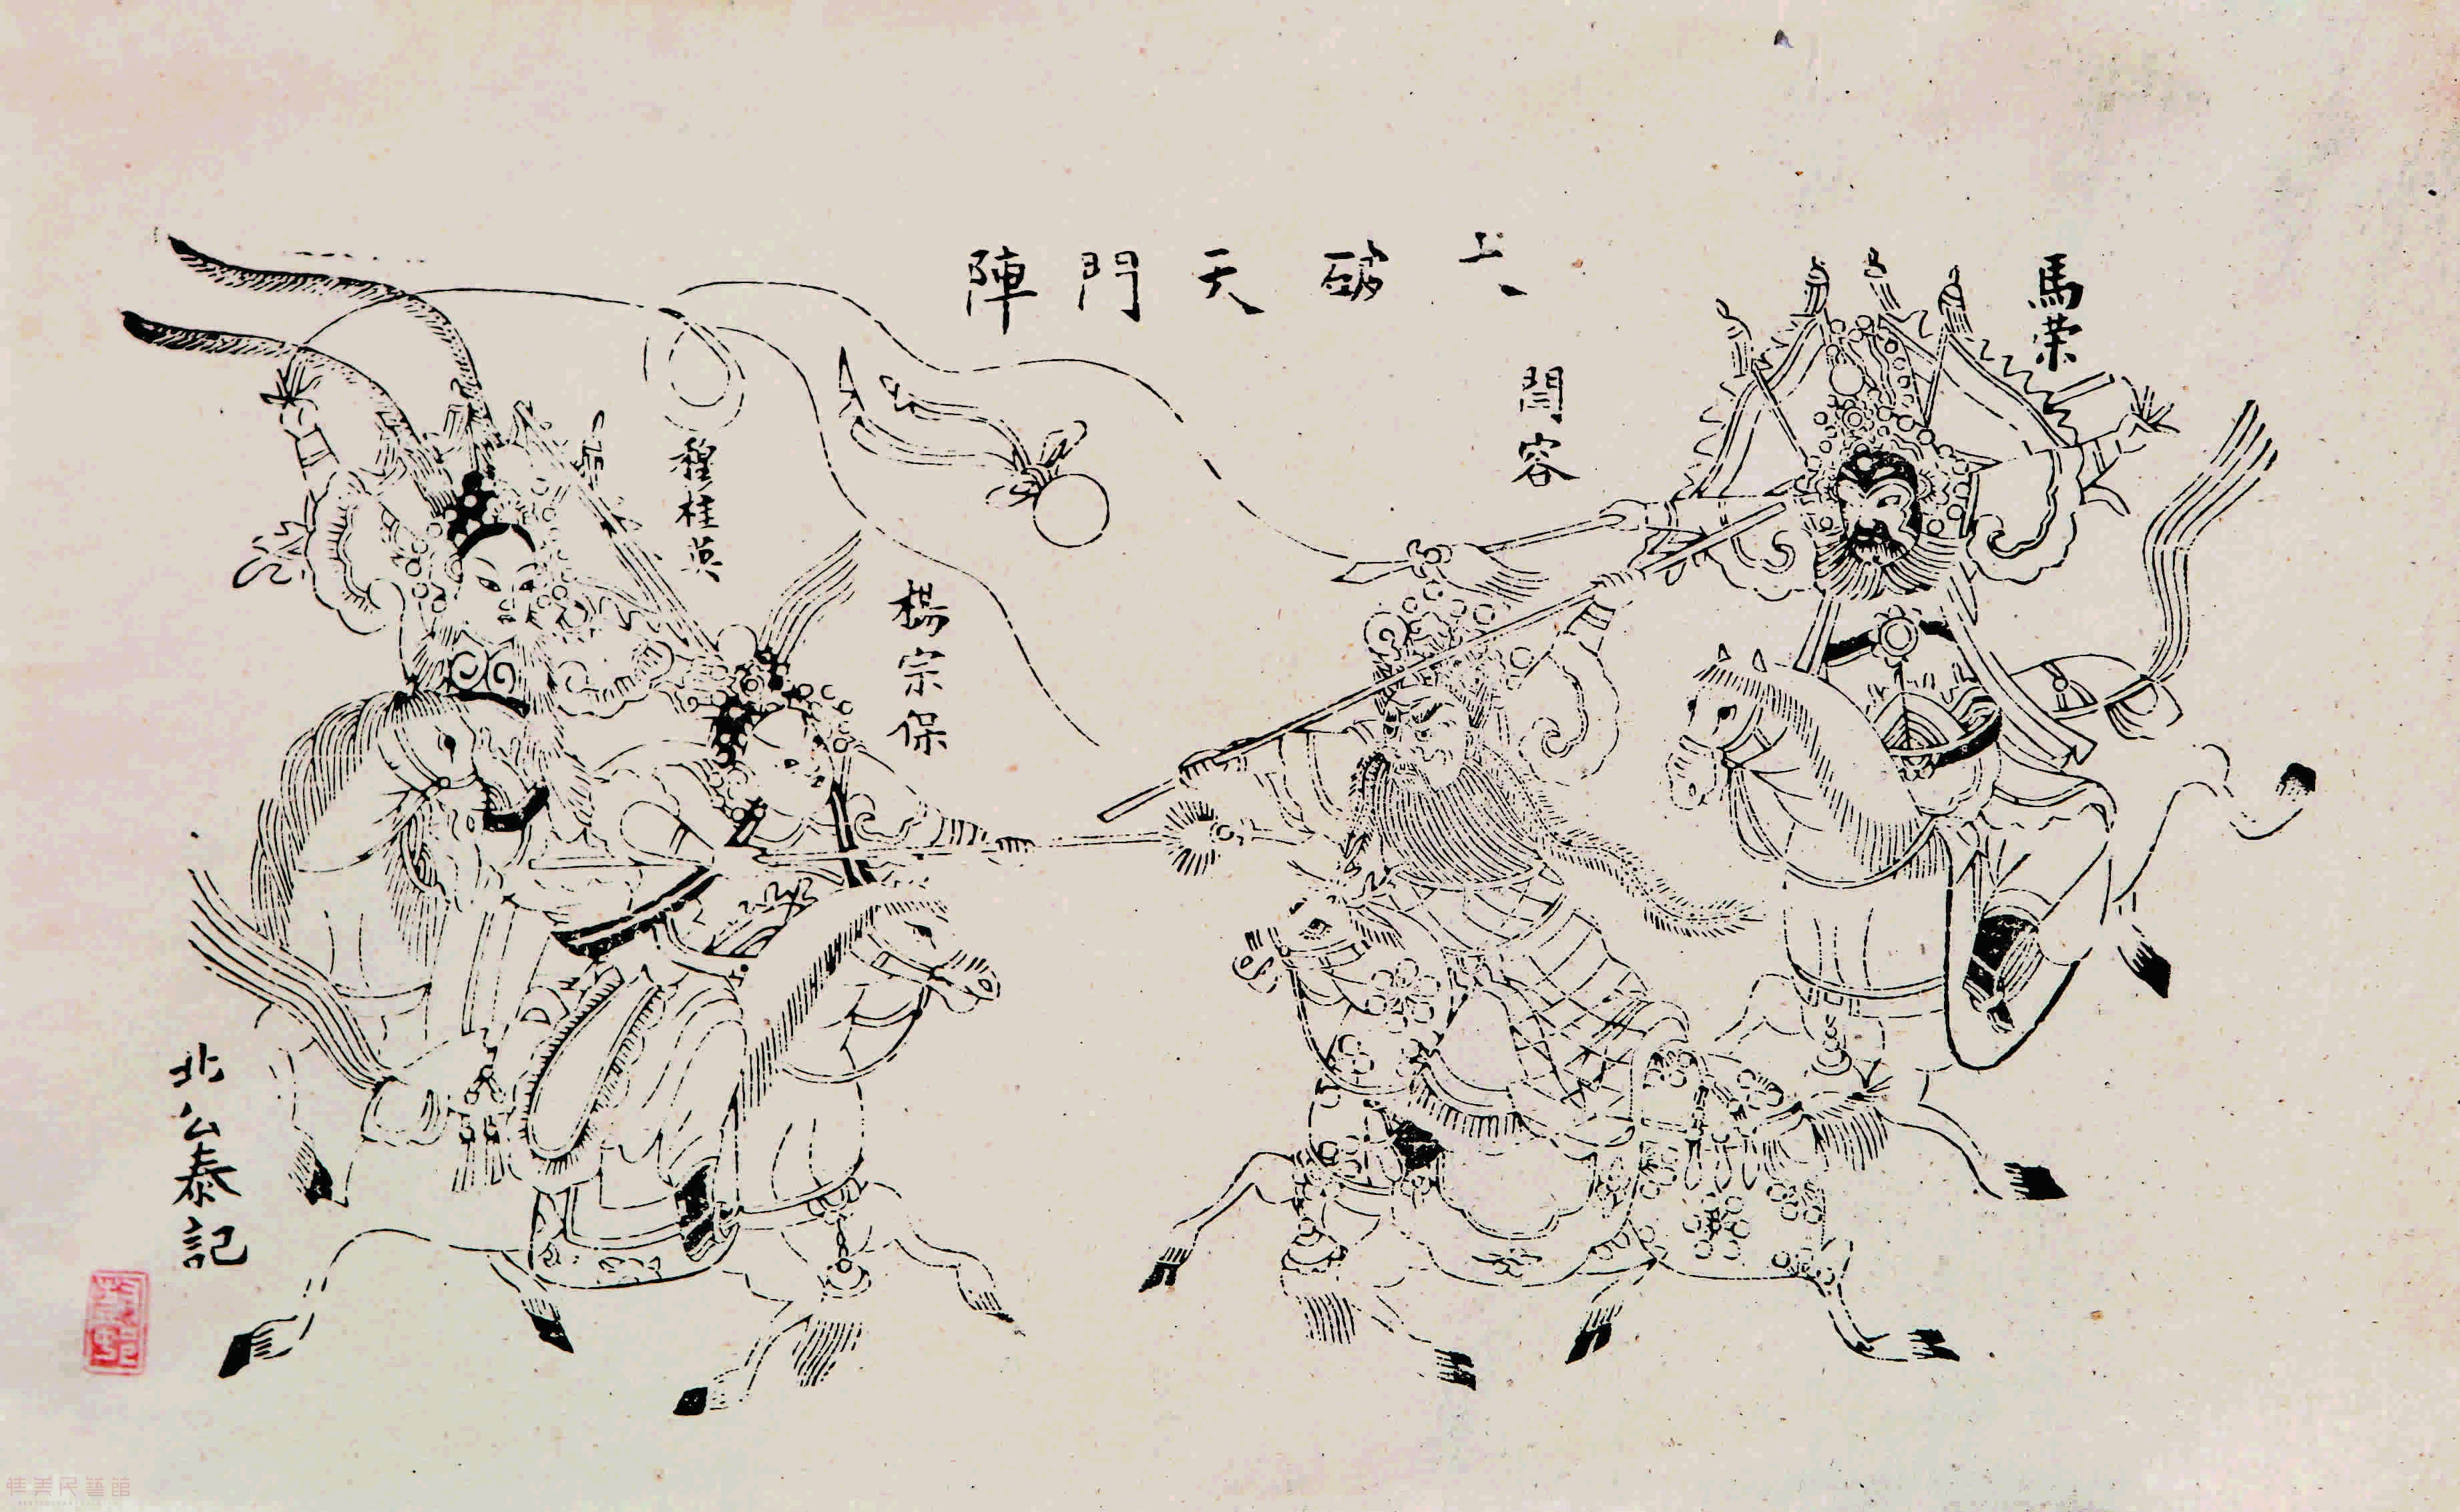 大破天門陣
馬荣
閆容
穆桂英
楊宗保
北公泰記
佳美民藝館